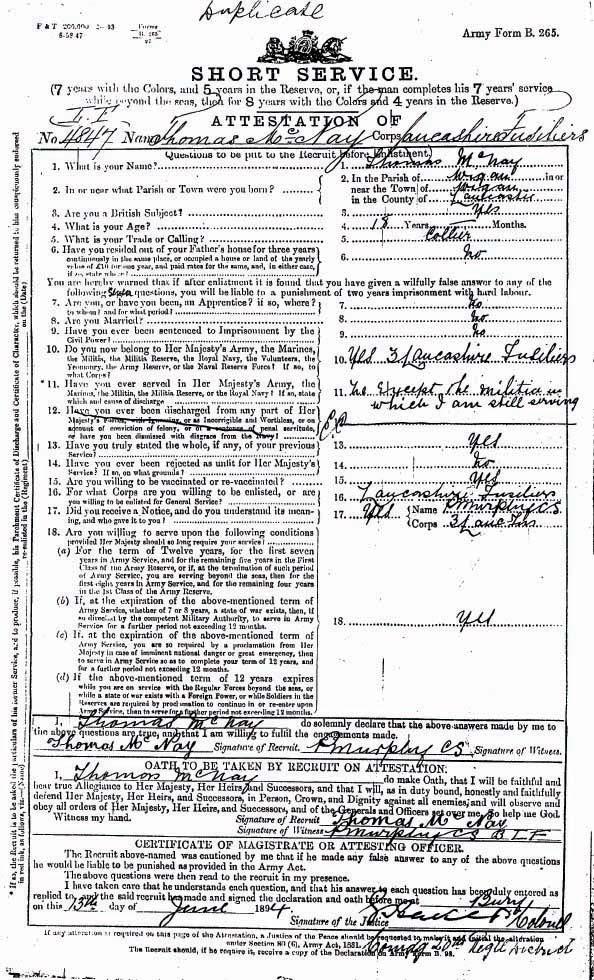 Duplicate
Army Form B. 265.
SHORT SERVICE.
(7 years with the Colors, and 5 years in the Reserve, or, if the man completes his 7 years' service
while beyond the seas, then for 8 years with the Colors and 4 years in the Reserve.)
ATTESTATION OF
No. 4847 Name Thomas McNay Corps Lancashire Fusiliers
Questions to be put to the Recruit before Enlistment.
1. What is your Name? 1. Thomas McNay
2. In or near what Parish or Town were you born? 2. In the Parish of Wigan in or
near the Town of Wigan
in the County of Lancaster
3. Are you a British Subject? 3. Yes
4. What is your Age? 4. 18 Years Months.
5. What is your Trade or Calling? 5. Collier
6. Have you resided out of your Father's house for three years
continuously in the same place, or occupied a house or land of the yearly
value of £10 for one year, and paid rates for the same, and, in either case,
if so, state where? 6. No
You are hereby warned that if after enlistment it is found that you have given a wilfully false answer to any of the
following questions, you will be liable to a punishment of two years imprisonment with hard labour.
7. Are you, or have you been, an Apprentice? if so, where?
to whom? and for what period? 7. No
8. Are you Married? 8. No
9. Have you ever been sentenced to Imprisonment by the
Civil Power? 9. No
10. Do you now belong to Her Majesty's Army, the Marines,
the Militia, the Militia Reserve, the Royal Navy, the Volunteers, the
Yeomanry, the Army Reserve, or the Naval Reserve Force? If so, to
what Corps? 10. Yes 3 Lancashire Fusiliers
*11. Have you ever served in Her Majesty's Army, the
Marines, the Militia, the Militia Reserve, or the Royal Navy? If so, state
which and cause of discharge 11. No Except the militia in
which I am still serving
12. Have you ever been discharged from any part of Her
Majesty's Forces, with Ignominy, or as Incorrigible and Worthless, or on
account of conviction of felony, or of a sentence of penal servitude,
or have you been dismissed with disgrace from the Navy?
13. Have you truly stated the whole, if any, of your previous
Service? 13. Yes
14. Have you ever been rejected as unfit for Her Majesty's
Service? If so, on what grounds? 14. No
15. Are you willing to be vaccinated or re-vaccinated? 15. Yes
16. For what Corps are you willing to be enlisted, or are
you willing to be enlisted for General Service? 16. Lancashire Fusiliers
17. Did you receive a Notice, and do you understand its mean-
ing, and who gave it to you? 17. Yes Name P Murphy CS
Corps 3 Lanc Fus
18. Are you willing to serve upon the following conditions
provided Her Majesty should so long require your service?
(a) For the term of Twelve years, for the first seven
years in Army Service, and for the remaining five years in the First
Class of the Army Reserve, or if, at the termination of such period
of Army Service, you are serving beyond the seas, then for the
first eight years in Army Service, and for the remaining four years
in the 1st Class of the Army Reserve.
(b) If, at the expiration of the above-mentioned term of
Army Service, whether of 7 or 8 years, a state of war exists, then, if
so directed by the competent Military Authority, to serve in Army
Service for a further period not exceeding 12 months.
18. Yes
(c) If, at the expiration of the above-mentioned term of
Army Service, you are so required by a proclamation from Her
Majesty in case of imminent national danger or great emergency, then
to serve in Army Service so as to complete your term of 12 years, and
for a further period not exceeding 12 months.
(d) If the above-mentioned term of 12 years expires
while you are on service with the Regular Forces beyond the seas, or
while a state of war exists with a Foreign Power, or while Soldiers in the
Reserves are required by proclamation to continue in or re-enter upon
Army Service, then to serve for a further period not exceeding 12 months.
I, Thomas McNay do solemnly declare that the above answers made by me to
the above questions are true, and that I am willing to fulfil the engagements made.
Thomas McNay Signature of Recruit. P Murphy CS Signature of Witness.
OATH TO BE TAKEN BY RECRUIT ON ATTESTATION.
I, Thomas McNay do make Oath, that I will be faithful and
bear true Allegiance to Her Majesty, Her Heirs, and Successors, and that I will, as in duty bound, honestly and faithfully
defend Her Majesty, Her Heirs, and Successors, in Person, Crown, and Dignity against all enemies, and will observe and
obey all orders of Her Majesty, Her Heirs, and Successors, and of the Generals and Officers set over me. So help me God.
Witness my hand. Signature of Recruit Thomas McNay
Signature of Witness P Murphy CS
CERTIFICATE OF MAGISTRATE OR ATTESTING OFFICER.
The Recruit above-named was cautioned by me that if he made any false answer to any of the above questions
he would be liable to be punished as provided in the Army Act.
The above questions were then read to the recruit in my presence.
I have taken care that he understands each question, and that his answer to each question has been duly entered as
replied to, and the said recruit has made and signed the declaration and oath before me at Bury
on this 13th day of June 1894
Signature of the Justice Colonel
If any alteration is required on this page of the Attestation, a Justice of the Peace should be requested to make it and initial the alteration
under Section 80 (6), Army Act, 1881. Comdg 20th Regtl District
The Recruit should, if he require it, receive a copy of the Declaration on Army Form B. 98.